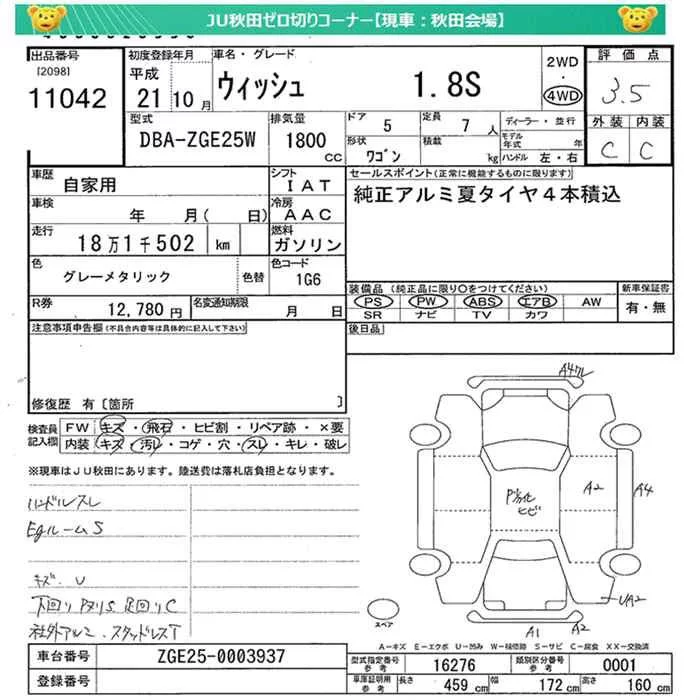 JU秋田ゼロ切りコーナー【現車：秋田会場】
出品番号
[2098]
11042
初度登録年月
平成
21年 10月
車名・グレード
ウィッシュ 1.8S
2WD
・
4WD
評価点
3.5
外装 内装
C C
型式
DBA-ZGE25W
排気量
1800
CC
ドア 5
形状 ワゴン
定員 7 人
積載 kg
ディーラー・並行
モデル年式 年
ハンドル 左・右
車歴
自家用
シフト
IAT
車検
年 月( 日)
冷房
AAC
走行
18万1千502 km
燃料
ガソリン
色
グレーメタリック
色替
色コード
1G6
R券
12,780円
名変通知期限
月 日
セールスポイント(正常に機能するものに限ります)
純正アルミ夏タイヤ４本積込
装備品 (純正品に限り○をつけてください)
PS PW ABS エアB AW
SR ナビ TV カワ
新車保証書
有・無
後日品
注意事項申告欄(不具合内容等は具体的に記入して下さい)
修復歴 有〔箇所 〕
検査員記入欄
FW キズ・飛石・ヒビ割・リペア跡・×要
内装 キズ・汚レ・コゲ・穴・スレ・キレ・破レ
※現車はJU秋田にあります。陸送費は落札店負担となります。
ハンドルスレ
EgルームS
キズ.U
下回りサタリS 足回りC
社外アルミ・スタッドレスT
A4ワレ
A2
A4
ヒビ
UA2
A1
A2
スペア
A－キズ E－エクボ U－凹み W－補修跡 S－サビ C－腐食 XX－交換済
車台番号
ZGE25-0003937
登録番号
型式指定番号
参考
16276
類別区分番号
参考
0001
車庫証明用
参考
長さ 459 cm
幅 172 cm
高さ 160 cm